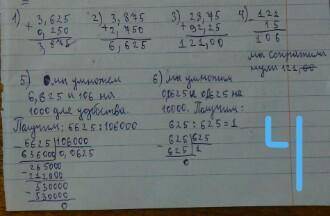 1) + 3,625
0,250
3,875
2) 3,875
+ 2,750
6,625
3) 28,75
+ 92,25
121,00
4) - 121
15
106
мы сократили
нули 121,00
5) мы умножем
6,625 и 106 на
1000 для удобства.
Получим: 6625:106000
6625 | 106000
636000 | 0,0625
- 265000
212000
- 530000
530000
0
6) мы умножим
0,625 и 0,625 на
1000. Получим:
625 : 625 = 1
- 625 | 625
625 | 1
0
4